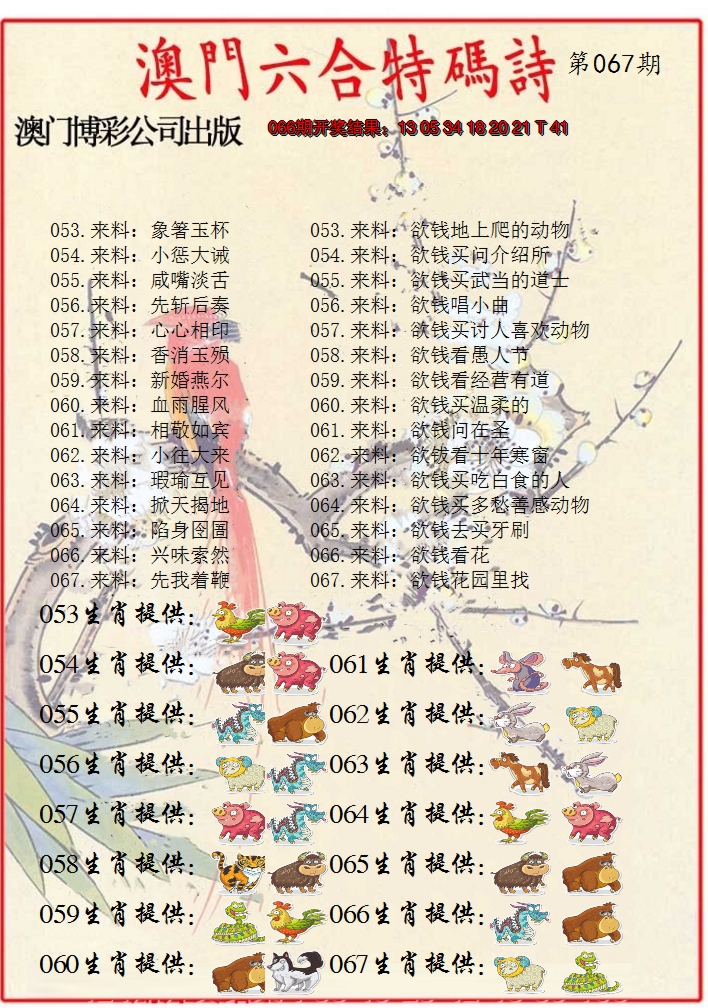 澳門六合特碼詩 第067期
澳门博彩公司出版 066期开奖结果：13 05 34 18 20 21 T 41
053.来料：象箸玉杯 053.来料：欲钱地上爬的动物
054.来料：小惩大诫 054.来料：欲钱买问介绍所
055.来料：咸嘴淡舌 055.来料：欲钱买武当的道士
056.来料：先斩后奏 056.来料：欲钱唱小曲
057.来料：心心相印 057.来料：欲钱买讨人喜欢动物
058.来料：香消玉殒 058.来料：欲钱看愚人节
059.来料：新婚燕尔 059.来料：欲钱看经营有道
060.来料：血雨腥风 060.来料：欲钱买温柔的
061.来料：相敬如宾 061.来料：欲钱问在圣
062.来料：小往大来 062.来料：欲钹看十年寒窗
063.来料：瑕瑜互见 063.来料：欲钱买吃白食的人
064.来料：掀天揭地 064.来料：欲钱买多愁善感动物
065.来料：陷身囹圄 065.来料：欲钱去买牙刷
066.来料：兴味索然 066.来料：欲钱看花
067.来料：先我着鞭 067.来料：欲钱花园里找
053生肖提供：
054生肖提供： 061生肖提供：
055生肖提供： 062生肖提供：
056生肖提供： 063生肖提供：
057生肖提供： 064生肖提供：
058生肖提供： 065生肖提供：
059生肖提供： 066生肖提供：
060生肖提供： 067生肖提供：